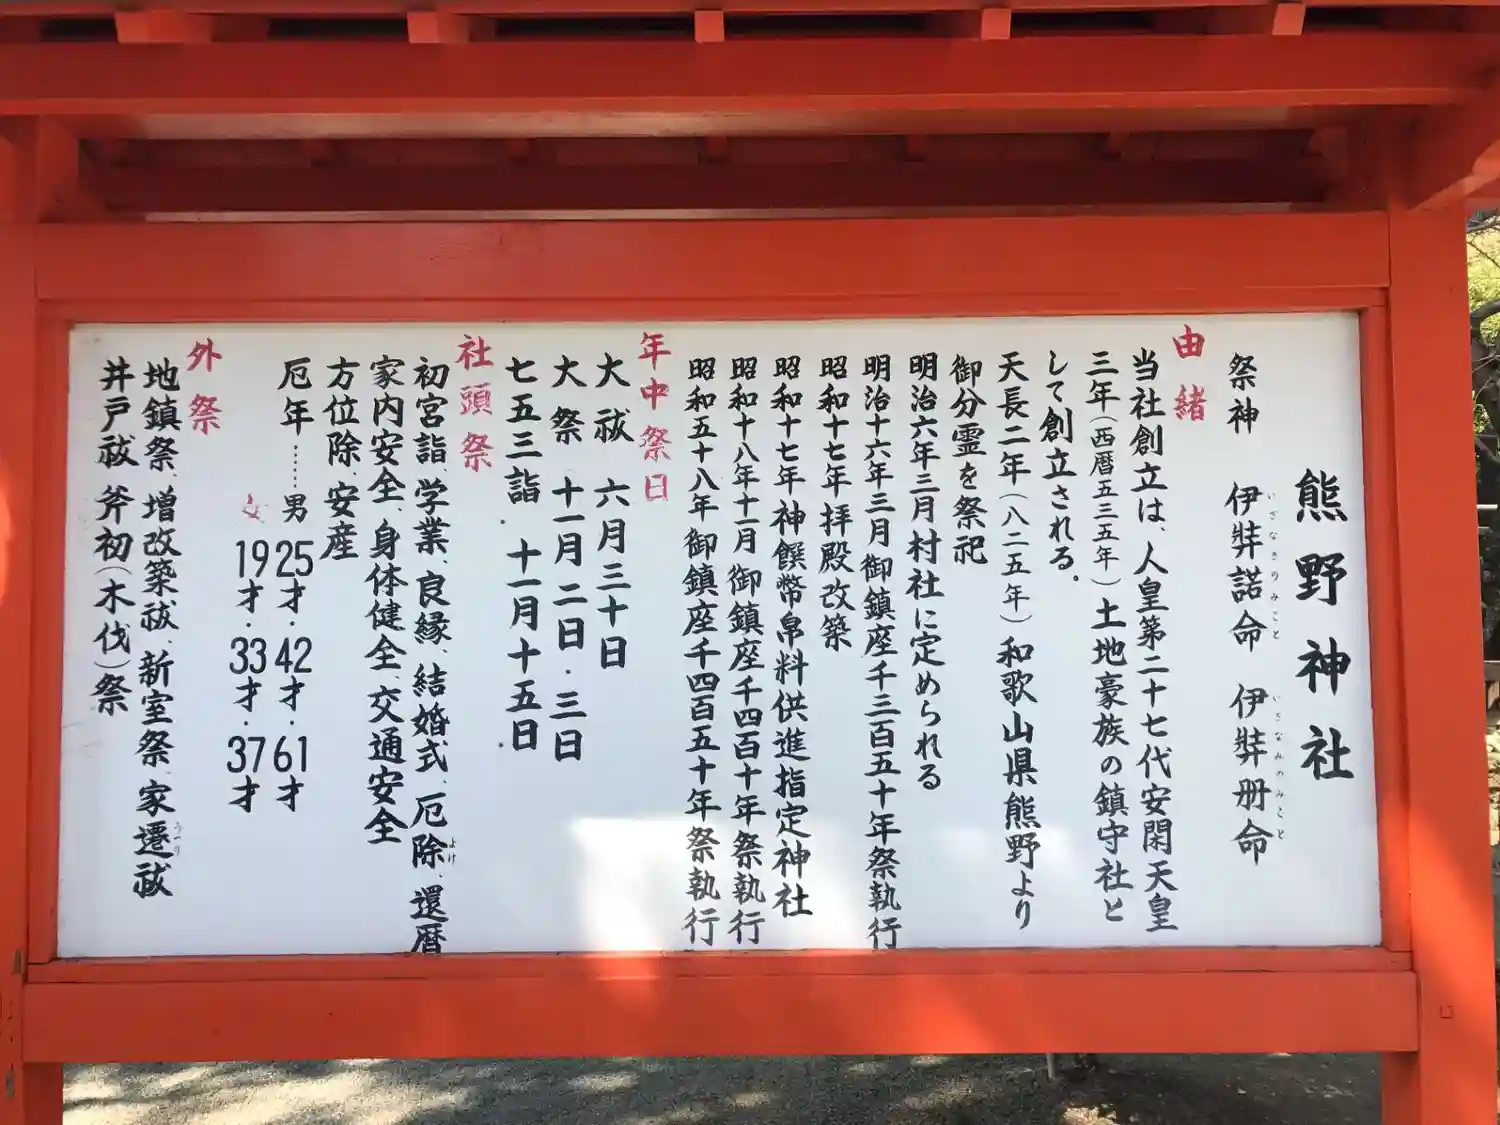 熊野神社
祭神 伊弉諾命 伊弉册命
いざなぎりみこと いざなみのみこと
由緒
当社創立は、人皇第二十七代安閑天皇
三年(西暦五三五年)土地豪族の鎮守社と
して創立される.
天長二年(八二五年)和歌山県熊野より
御分霊を祭祀
明治六年三月村社に定められる
明治十六年三月御鎮座千三百五十年祭執行
昭和十七年拝殿改築
昭和十七年神饌幣帛料供進指定神社
昭和十八年十一月御鎮座千四百十年祭執行
昭和五十八年御鎮座千四百五十年祭執行
年中祭日
大祓 六月三十日
大祭 十一月二日・三日
七五三詣 十一月十五日
社頭祭
初宮詣、学業、良縁、結婚式、厄除、還暦
よけ
家内安全、身体健全、交通安全
方位除、安産
厄年……男 25才・42才・61才
女 19才・33才・37才
外祭
地鎮祭、増改築祓、新室祭、家遷祓
うつり
井戸祓 斧初(木伐)祭